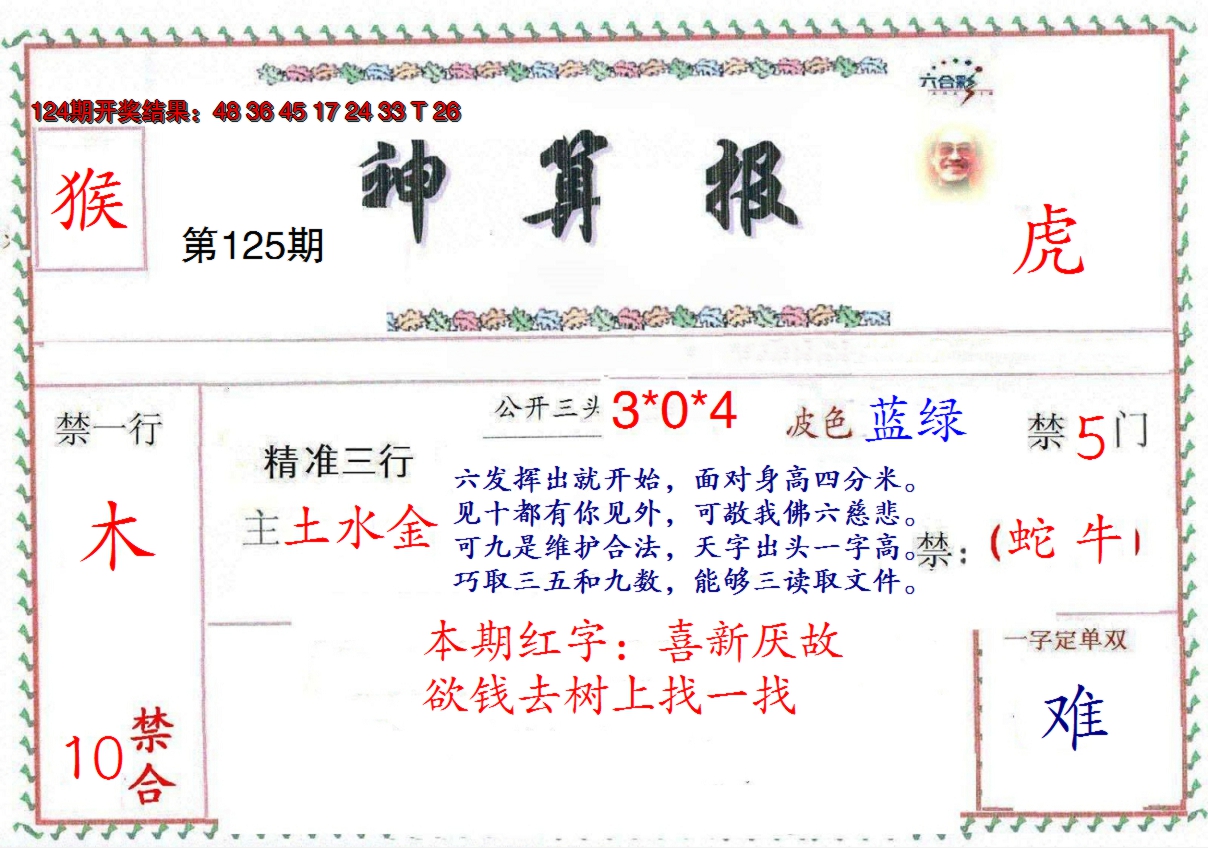 六合彩
124期开奖结果：48 36 45 17 24 33 T 26
猴
神算报
第125期
虎
禁一行
木
10禁合
精准三行
主土水金
公开三头 3*0*4
波色 蓝绿
禁5门
六发挥出就开始，面对身高四分米。
见十都有你见外，可敌我佛六慈悲。
可九是维护合法，天字出头一字高。
巧取三五和九数，能够三读取文件。
禁：（蛇 牛）
本期红字：喜新厌故
欲钱去树上找一找
一字定单双
难